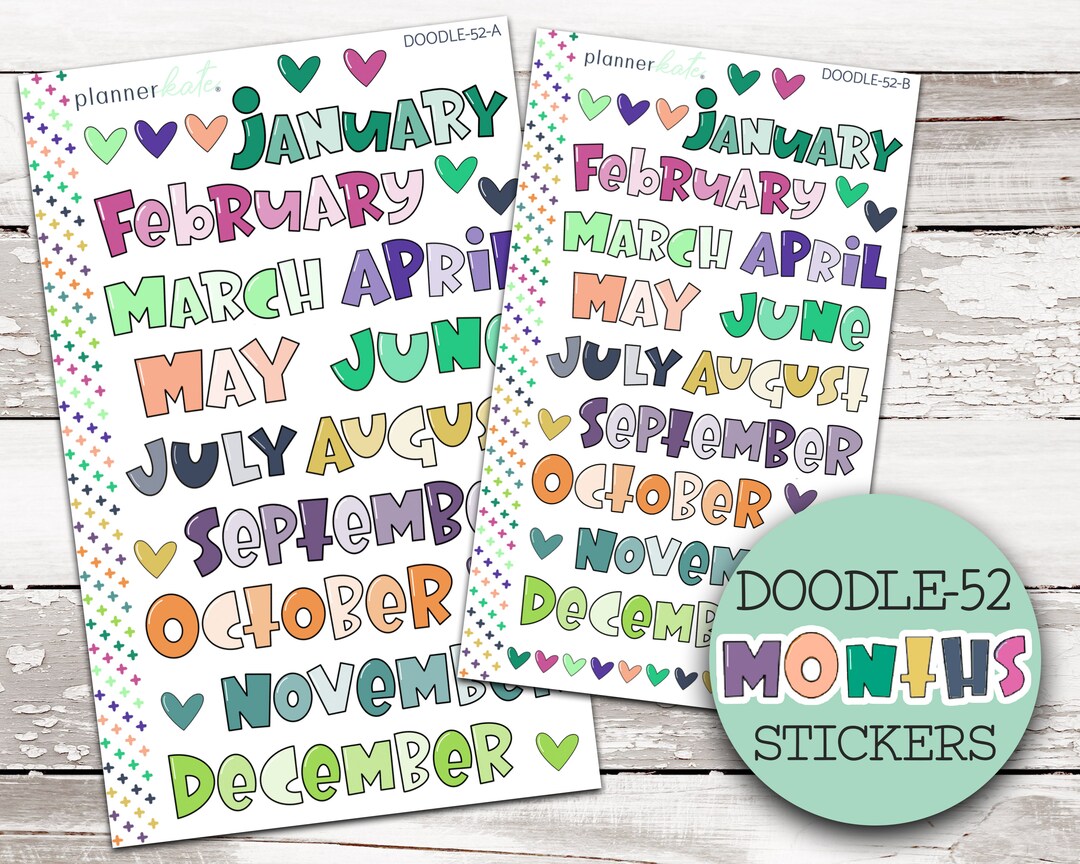 DOODLE-52-A
plannerkate®
JANUARY
FebRUARY
MARCH APRiL
MAY JUNE
JULY AUGUS
SepteMBe
OCtOBeR
NOVeMBeR
DeCeMBeR
DOODLE-52-B
plannerkate®
JANUARY
FebRUARY
MARCH APRiL
MAY JUNe
JULY AUGUSt
SepteMBeR
OCtOBeR
NOVeM
DeCeMB
DOODLE-52
MONtHS
STICKERS